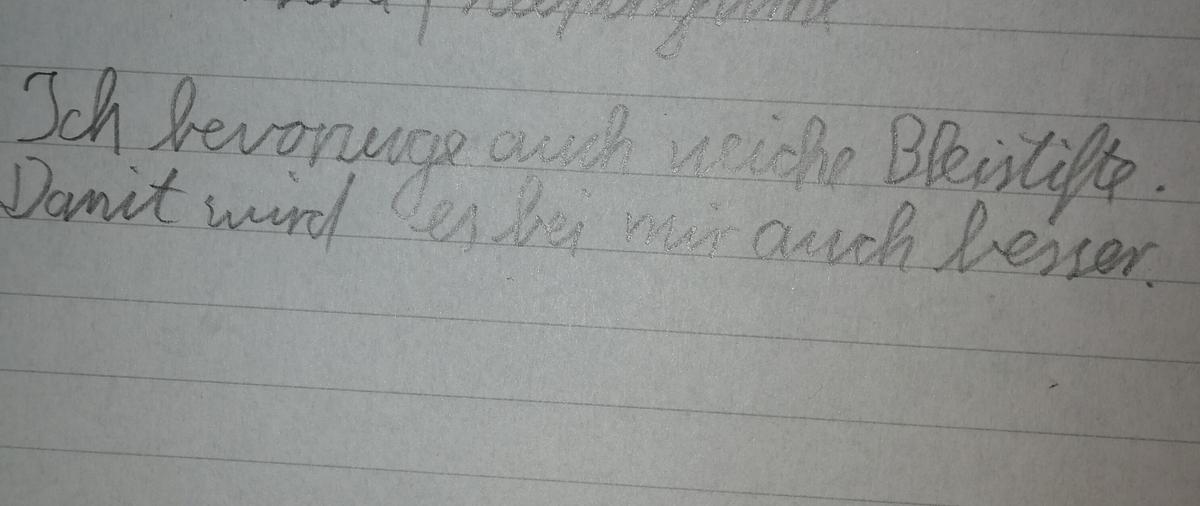 Ich bevorzuge auch weiche Bleistifte.
Damit wird es bei mir auch besser.